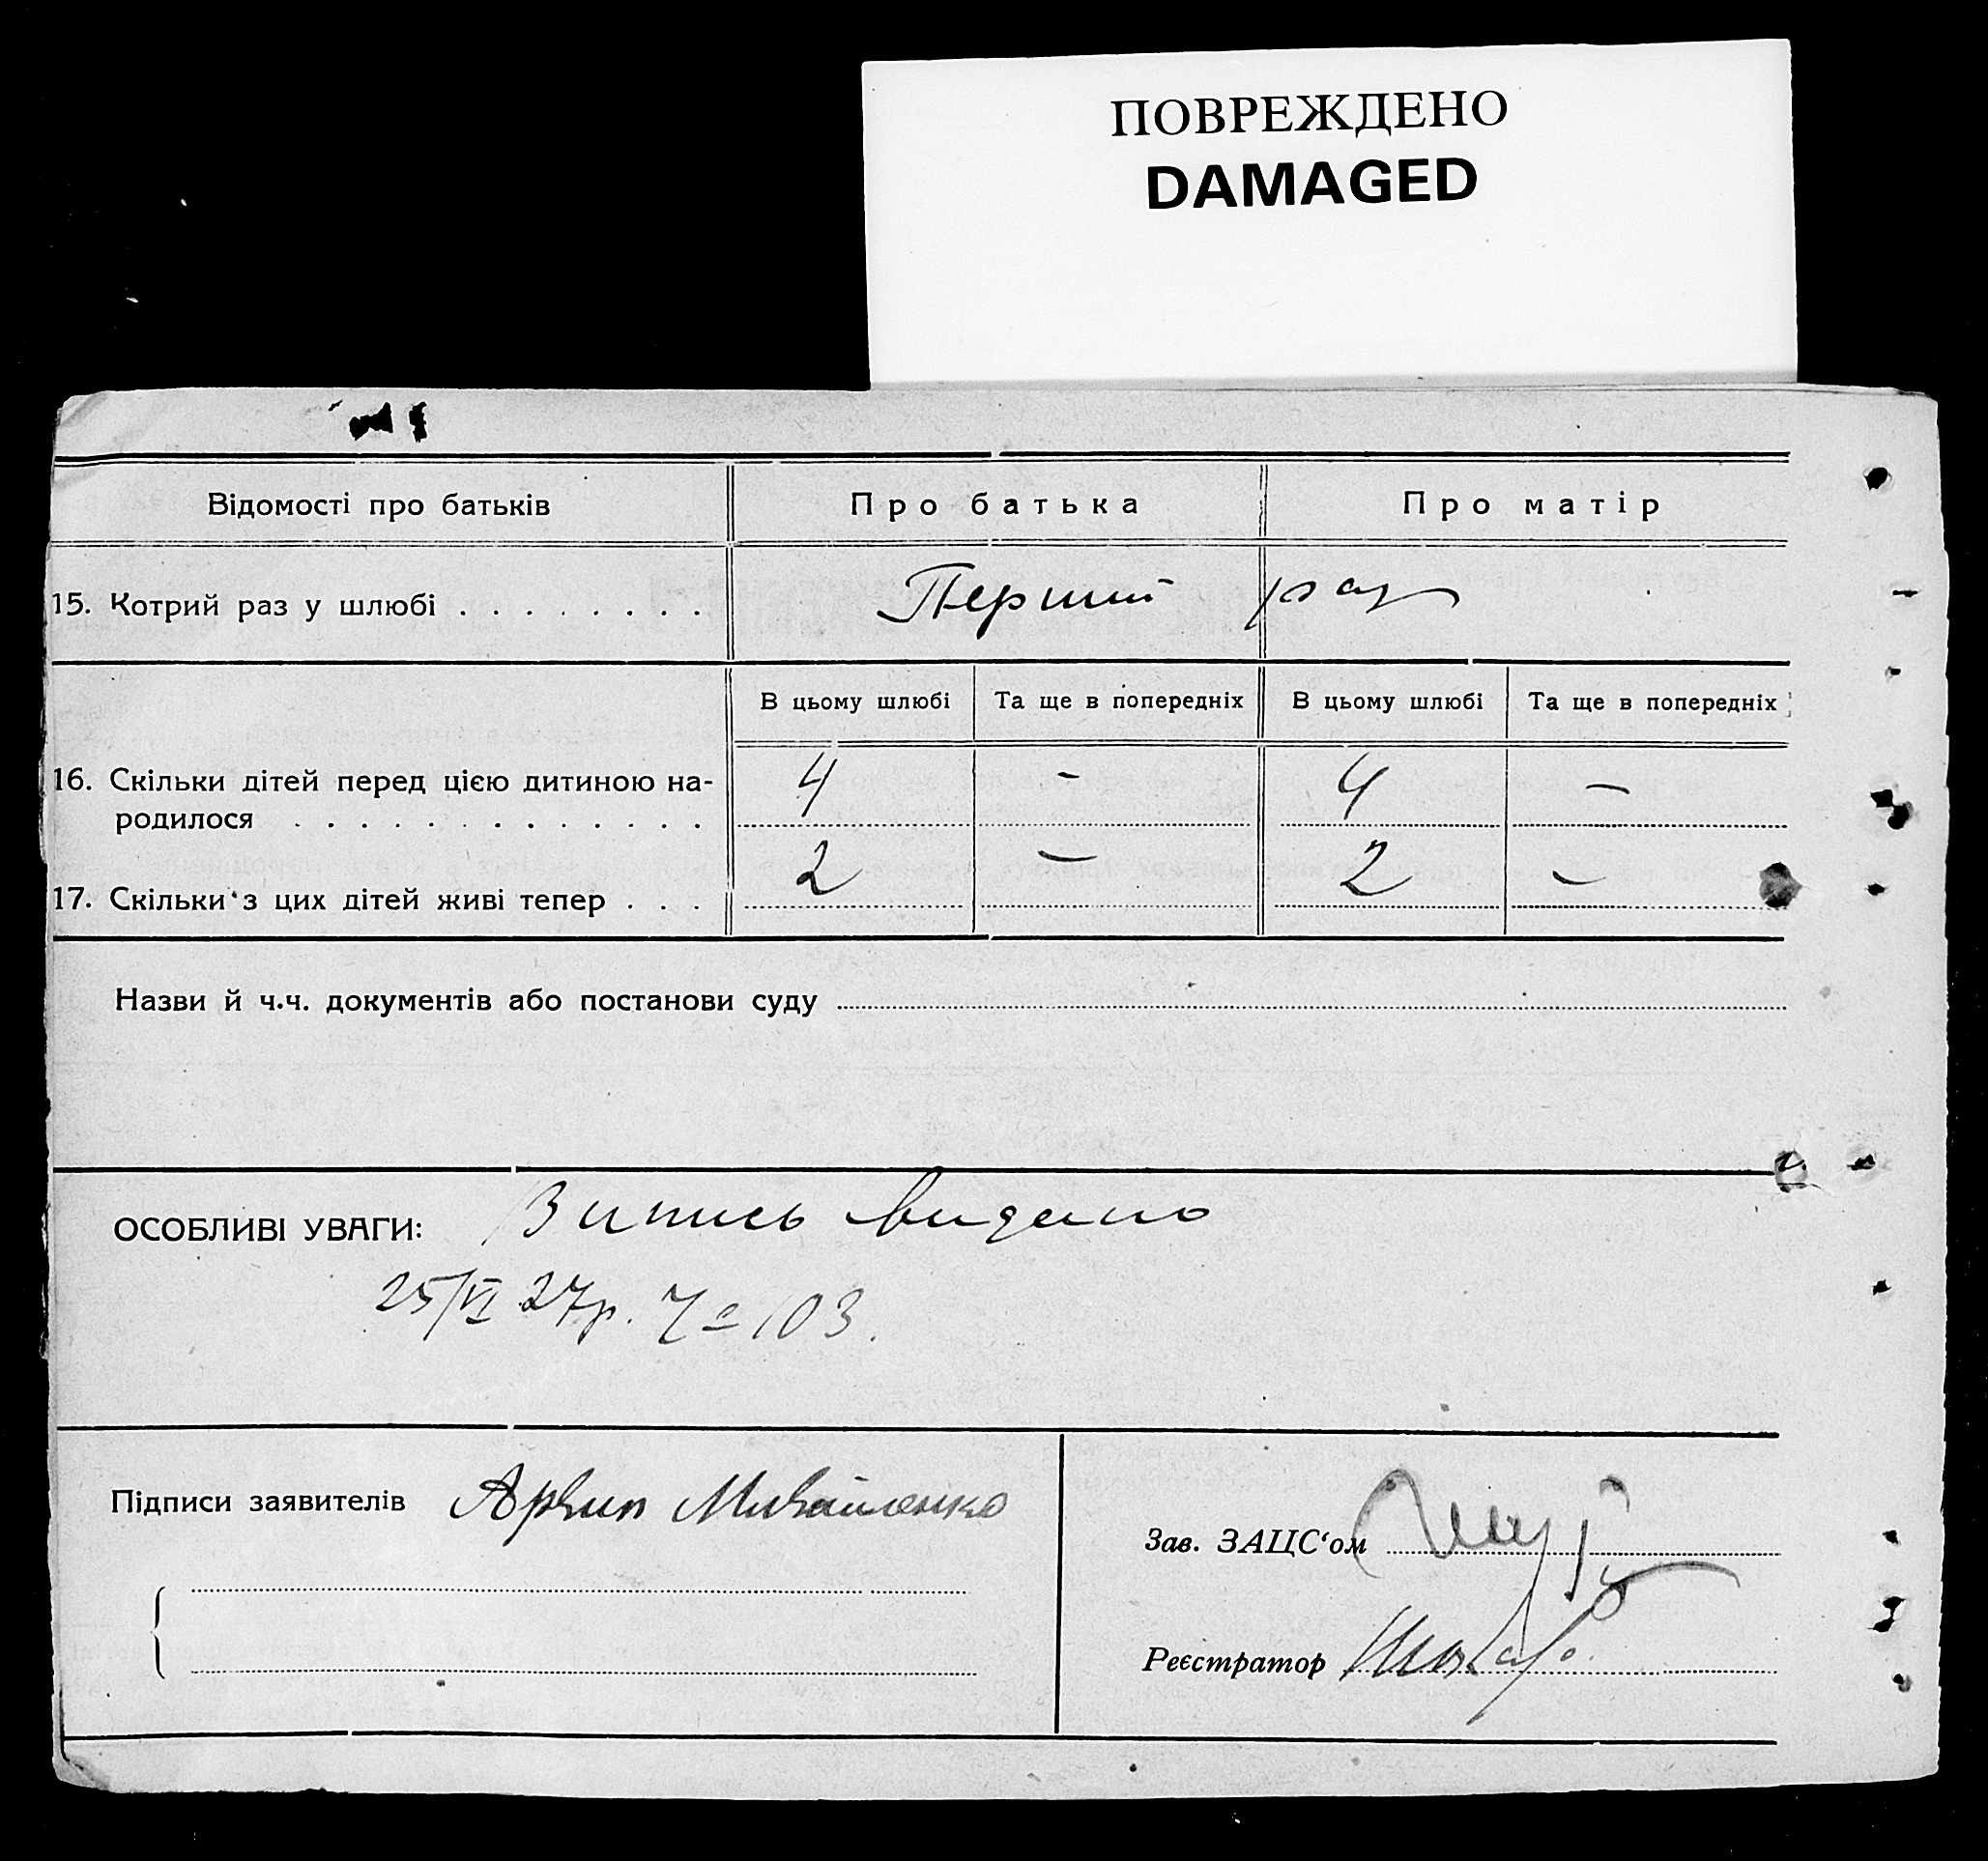 ПОВРЕЖДЕНО
DAMAGED
Відомості про батьків Про батька Про матір
15. Котрий раз у шлюбі . . . . . . . . Перший раз
В цьому шлюбі Та ще в попередніх В цьому шлюбі Та ще в попередніх
16. Скільки дітей перед цією дитиною на- 4 – 4 –
родилося . . . . . . . . . . . . .
17. Скільки з цих дітей живі тепер . . . 2 – 2 –
Назви й ч.ч. документів або постанови суду
ОСОБЛИВІ УВАГИ: видано
25/VI 27р. 103.
Підписи заявителів Архип Михайленко
Зав. ЗАЦС‘ом
Реєстратор